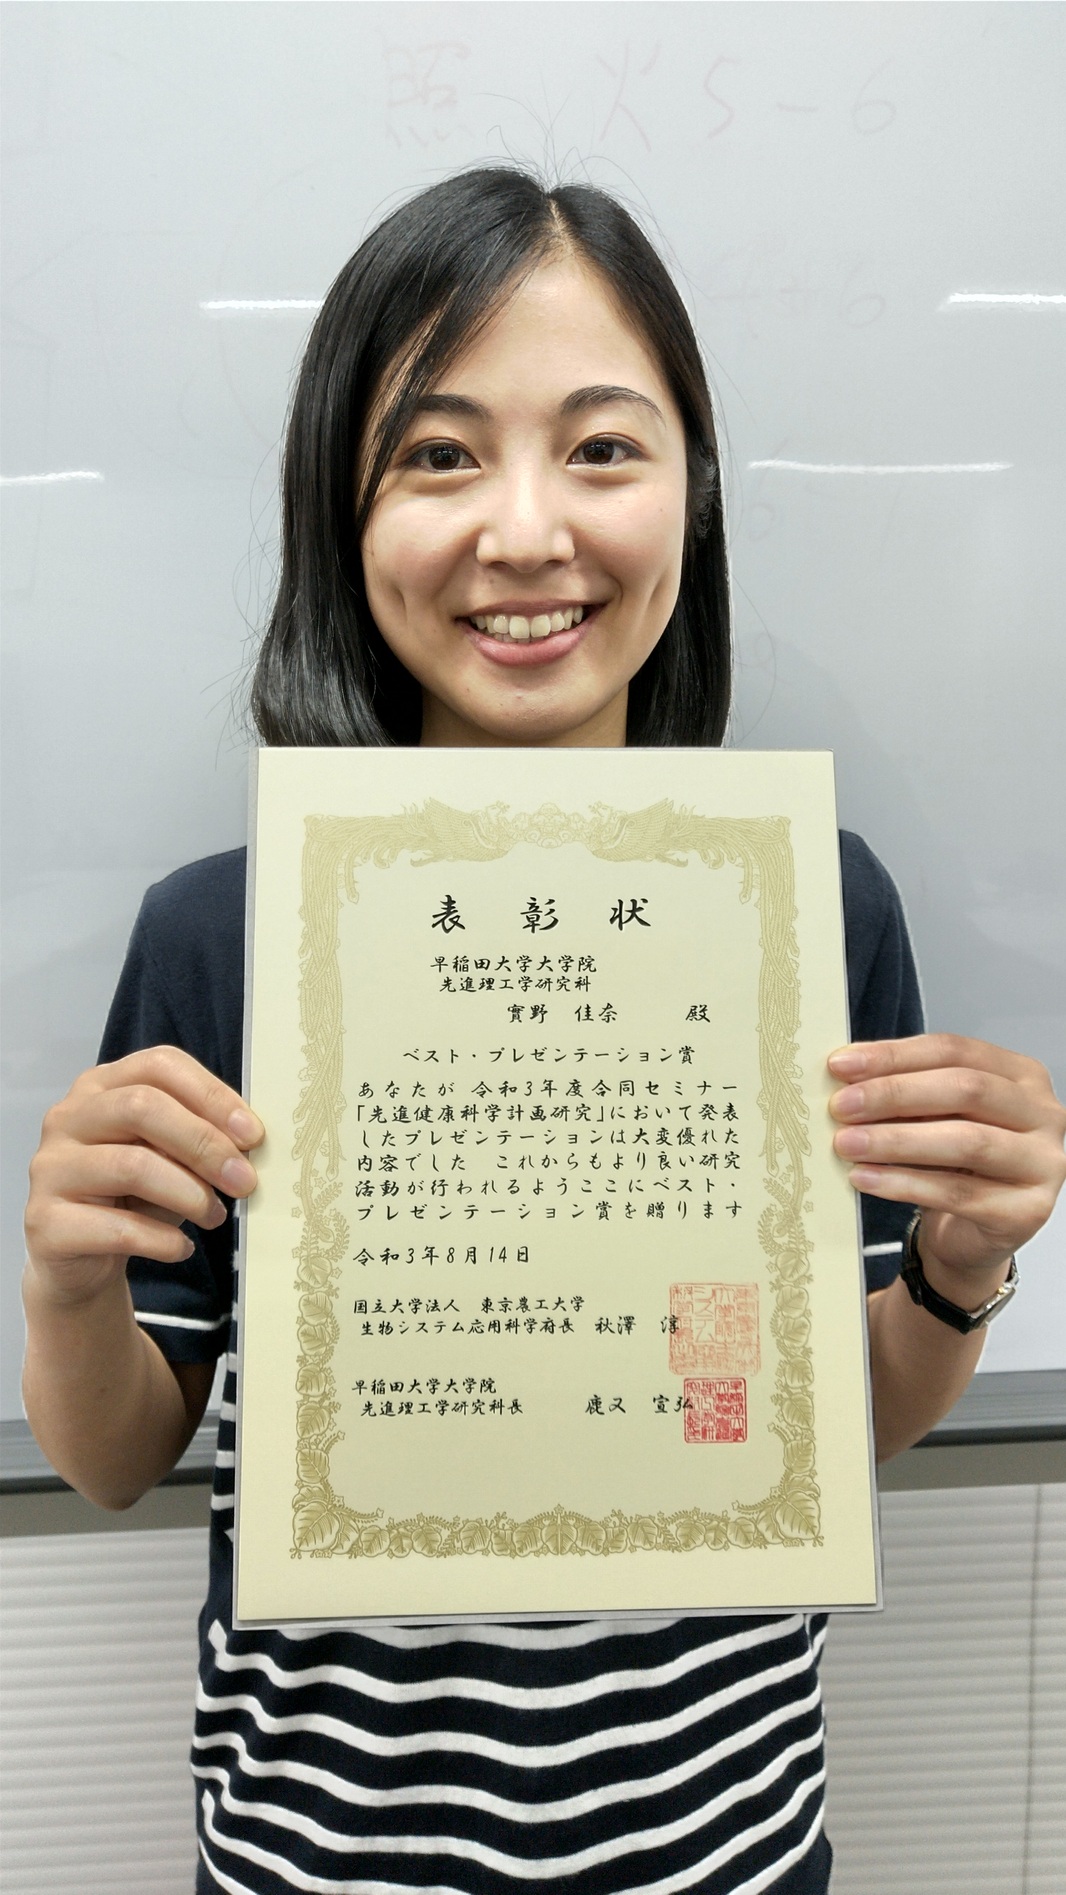 照 火5-6
表彰状
早稲田大学大学院
先進理工学研究科
實野 佳奈 殿
ベスト・プレゼンテーション賞
あなたが 令和3年度合同セミナー
「先進健康科学計画研究」において発表
したプレゼンテーションは大変優れた
内容でした これからもより良い研究
活動が行われるようここにベスト・
プレゼンテーション賞を贈ります
令和3年8月14日
国立大学法人 東京農工大学
生物システム応用科学府長 秋澤 淳
早稲田大学大学院
先進理工学研究科長 鹿又 宣弘